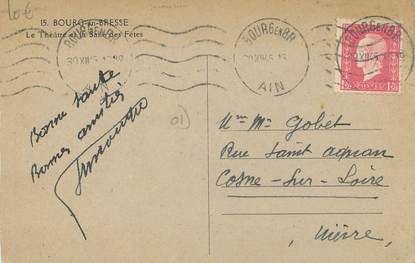 10€
15. BOURG-en-BRESSE
Le Théâtre et la Salle des Fêtes
BOURG EN BR.
AIN
POSTES
Bonne Santé
Bonnes amitiés
01)
Mr Me Gobet
Rue Saint Agnan
Cosne-sur-Loire
Nièvre